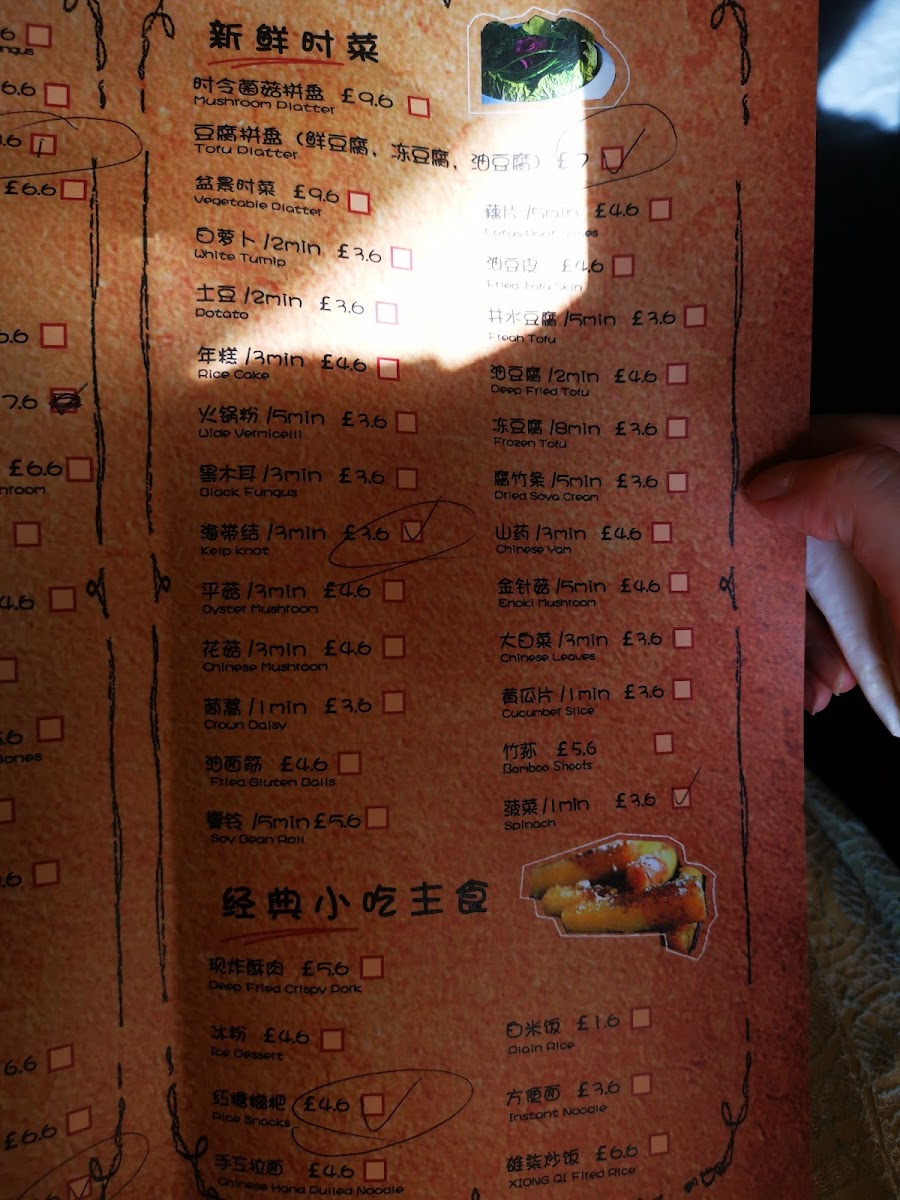 新鲜时菜
时令菌菇拼盘 £9.6
Mushroom Platter
豆腐拼盘（鲜豆腐，冻豆腐，油豆腐） £7
Tofu Platter
盆景时菜 £9.6
Vegetable Platter
白萝卜 /2min £3.6
White Turnip
土豆 /2min £3.6
Potato
年糕 /3min £4.6
Rice Cake
火锅粉 /5min £3.6
Wide Vermicelli
黑木耳 /3min £3.6
Black Fungus
海带结 /3min £3.6
Kelp knot
平菇 /3min £4.6
Oyster Mushroom
花菇 /3min £4.6
Chinese Mushroom
茼蒿 /1min £3.6
Crown Daisy
油面筋 £4.6
Fried Gluten Balls
响铃 /5min £5.6
Soy Bean Roll
藕片 /5min £4.6
Lotus Root Slices
油豆皮 £4.6
Fried Tofu Skin
井水豆腐 /5min £3.6
Fresh Tofu
油豆腐 /2min £4.6
Deep Fried Tofu
冻豆腐 /8min £3.6
Frozen Tofu
腐竹条 /5min £3.6
Dried Soya Cream
山药 /3min £4.6
Chinese Yam
金针菇 /5min £4.6
Enoki Mushroom
大白菜 /3min £3.6
Chinese Leaves
黄瓜片 /1min £3.6
Cucumber Slice
竹荪 £5.6
Bamboo Shoots
菠菜 /1min £3.6
Spinach
经典小吃主食
现炸酥肉 £5.6
Deep Fried Crispy Pork
冰粉 £4.6
Ice Dessert
红糖糍粑 £4.6
Rice Snacks
手工拉面 £4.6
Chinese Hand Pulled Noodle
白米饭 £1.6
Plain Rice
方便面 £3.6
Instant Noodle
雄柒炒饭 £6.6
XIONG QI Fried Rice
£6.6
7.6
£6.6
4.6
6.6
£6.6